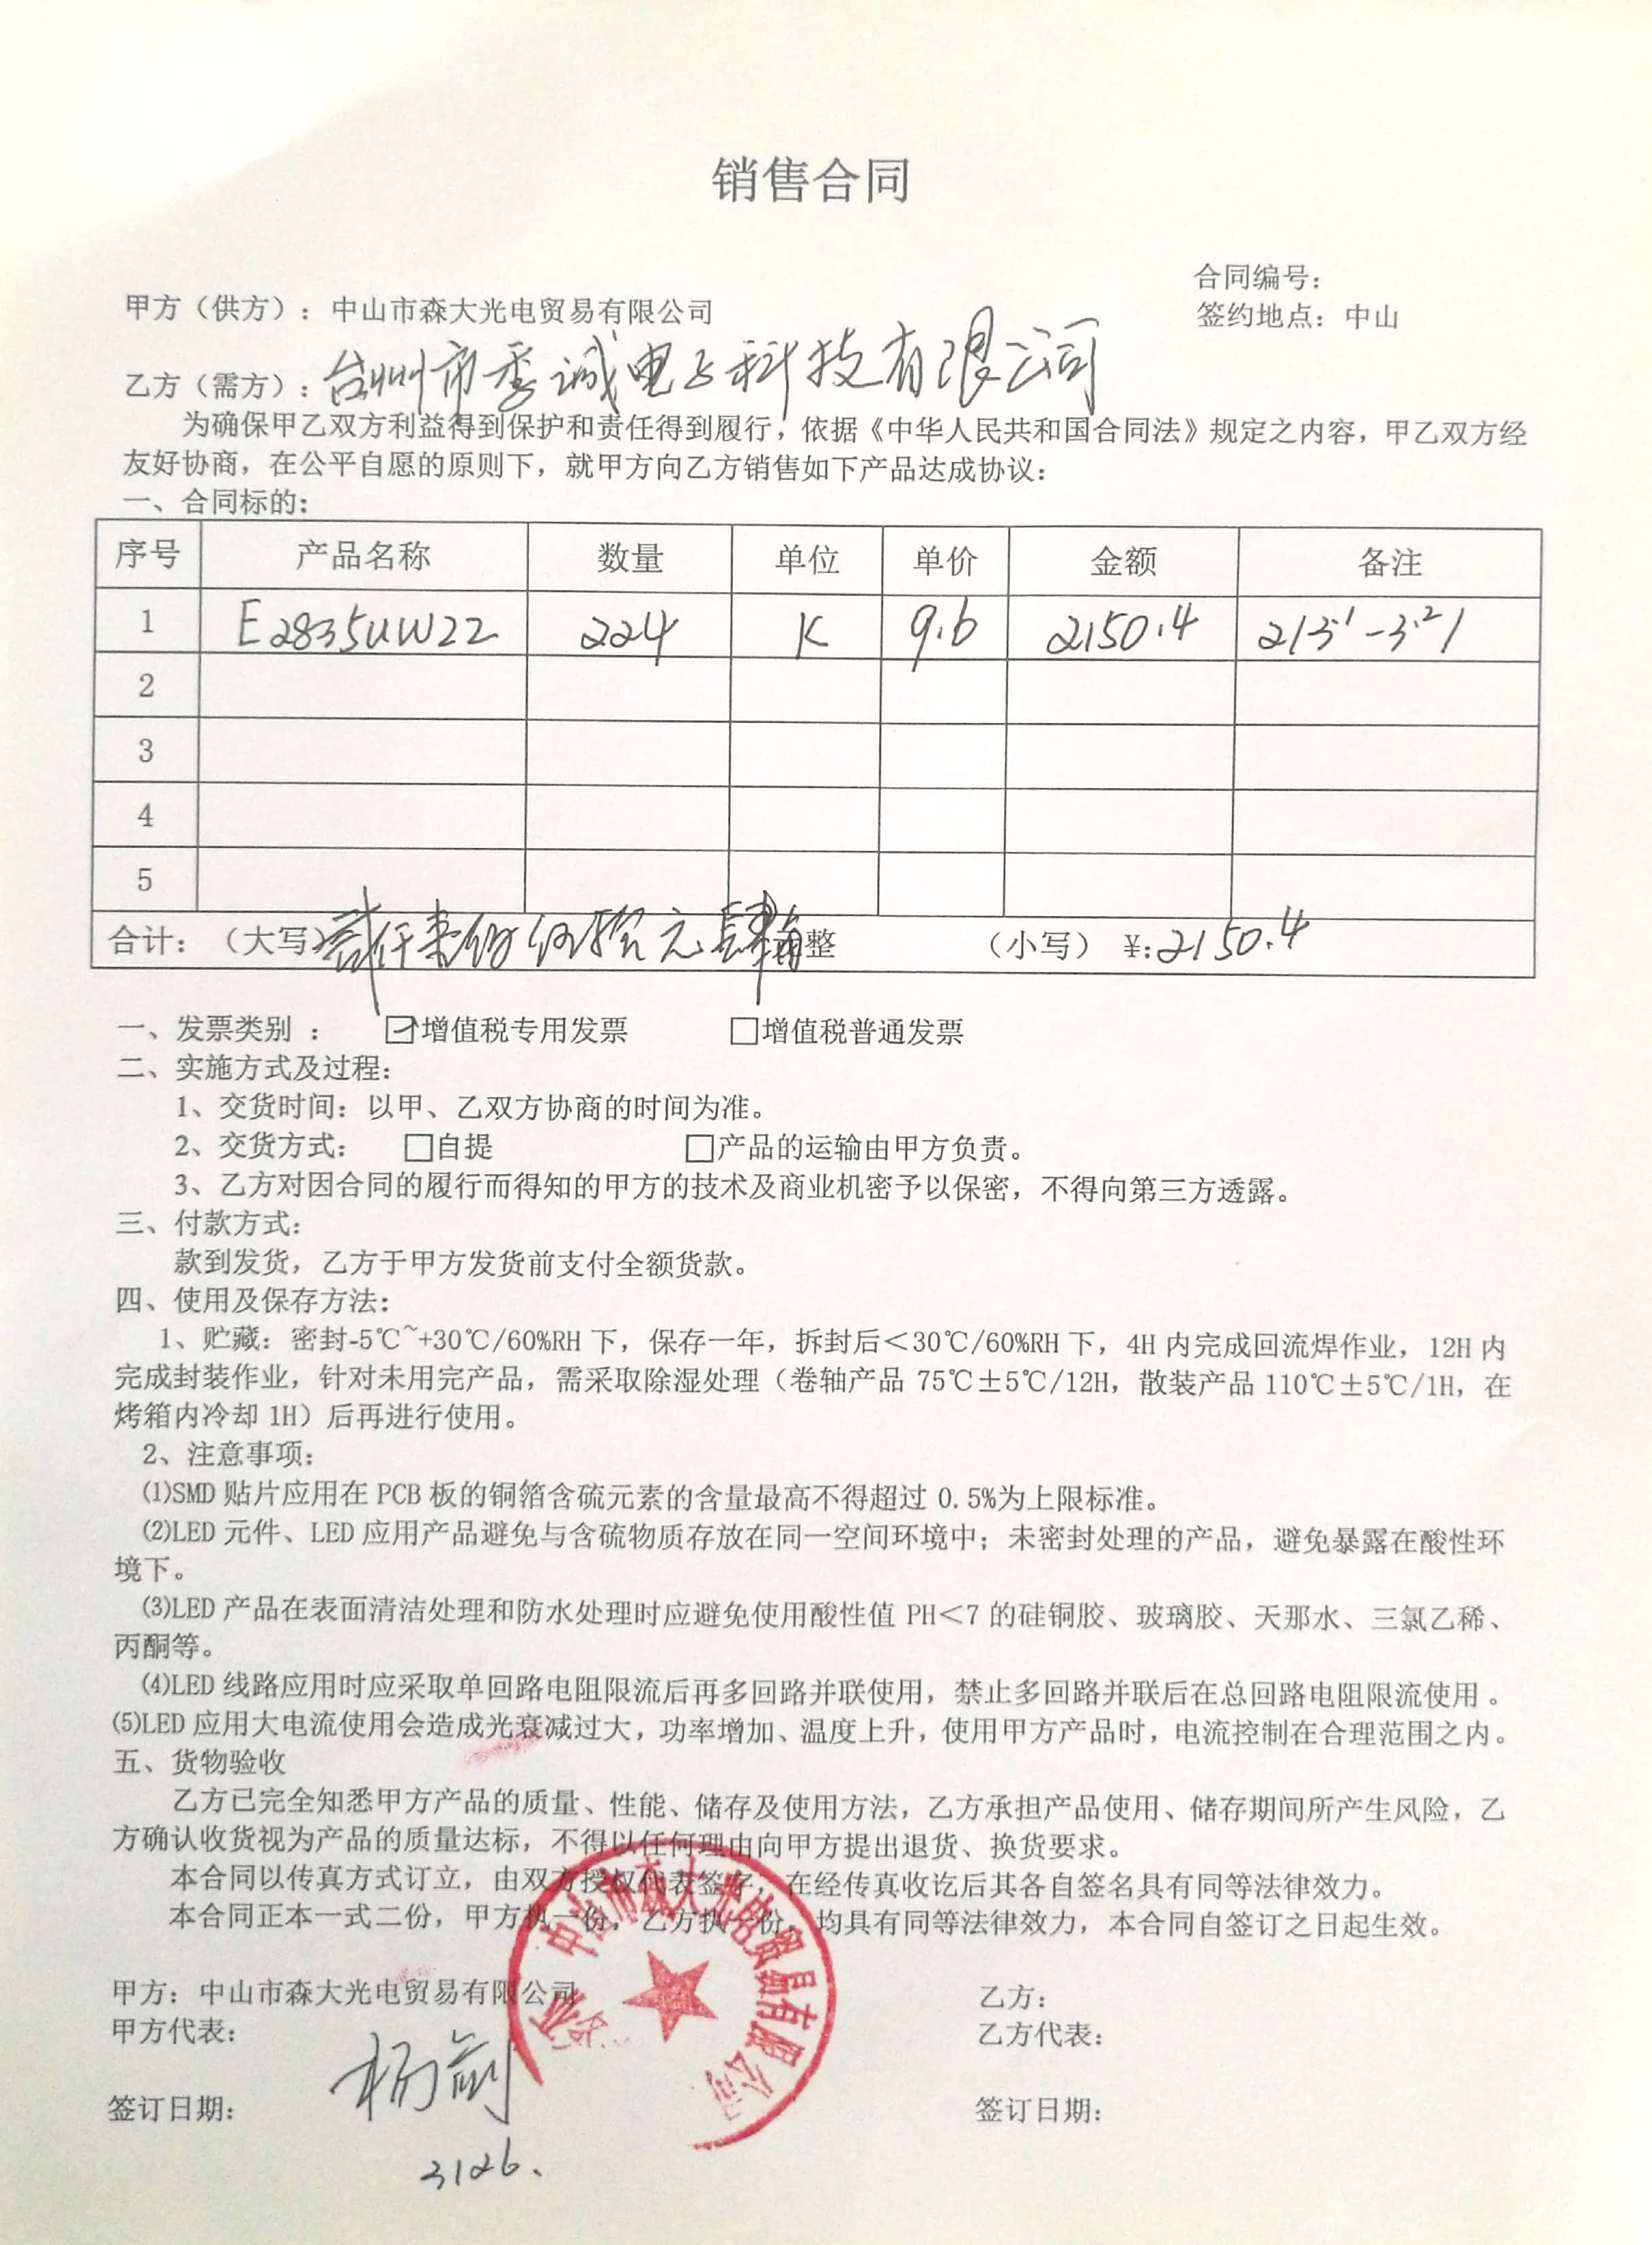 销售合同
合同编号：
甲方（供方）：中山市森大光电贸易有限公司
签约地点：中山
乙方（需方）：台州市季诚电子科技有限公司
为确保甲乙双方利益得到保护和责任得到履行，依据《中华人民共和国合同法》规定之内容，甲乙双方经
友好协商，在公平自愿的原则下，就甲方向乙方销售如下产品达成协议：
一、合同标的：
序号 产品名称 数量 单位 单价 金额 备注
1 E2835UW22 224 K 9.6 2150.4 213.1-3.21
2
3
4
5
合计：（大写）贰仟壹佰伍拾元肆角整 （小写）¥:2150.4
一、发票类别 ： ☑增值税专用发票 □增值税普通发票
二、实施方式及过程：
1、交货时间：以甲、乙双方协商的时间为准。
2、交货方式： □自提 □产品的运输由甲方负责。
3、乙方对因合同的履行而得知的甲方的技术及商业机密予以保密，不得向第三方透露。
三、付款方式：
款到发货，乙方于甲方发货前支付全额货款。
四、使用及保存方法：
1、贮藏：密封-5℃~+30℃/60%RH 下，保存一年，拆封后＜30℃/60%RH 下，4H 内完成回流焊作业，12H 内
完成封装作业，针对未用完产品，需采取除湿处理（卷轴产品 75℃±5℃/12H，散装产品 110℃±5℃/1H，在
烤箱内冷却 1H）后再进行使用。
2、注意事项：
⑴SMD 贴片应用在 PCB 板的铜箔含硫元素的含量最高不得超过 0.5%为上限标准。
⑵LED 元件、LED 应用产品避免与含硫物质存放在同一空间环境中；未密封处理的产品，避免暴露在酸性环
境下。
⑶LED 产品在表面清洁处理和防水处理时应避免使用酸性值 PH＜7 的硅铜胶、玻璃胶、天那水、三氯乙稀、
丙酮等。
⑷LED 线路应用时应采取单回路电阻限流后再多回路并联使用，禁止多回路并联后在总回路电阻限流使用 。
⑸LED 应用大电流使用会造成光衰减过大，功率增加、温度上升，使用甲方产品时，电流控制在合理范围之内。
五、货物验收
乙方已完全知悉甲方产品的质量、性能、储存及使用方法，乙方承担产品使用、储存期间所产生风险，乙
方确认收货视为产品的质量达标，不得以任何理由向甲方提出退货、换货要求。
本合同以传真方式订立，由双方授权代表签字，在经传真收讫后其各自签名具有同等法律效力。
本合同正本一式二份，甲方执一份，乙方执一份，均具有同等法律效力，本合同自签订之日起生效。
中山市森大光电贸易有限公司
甲方：中山市森大光电贸易有限公司
乙方：
甲方代表：
乙方代表：
签订日期：
签订日期：